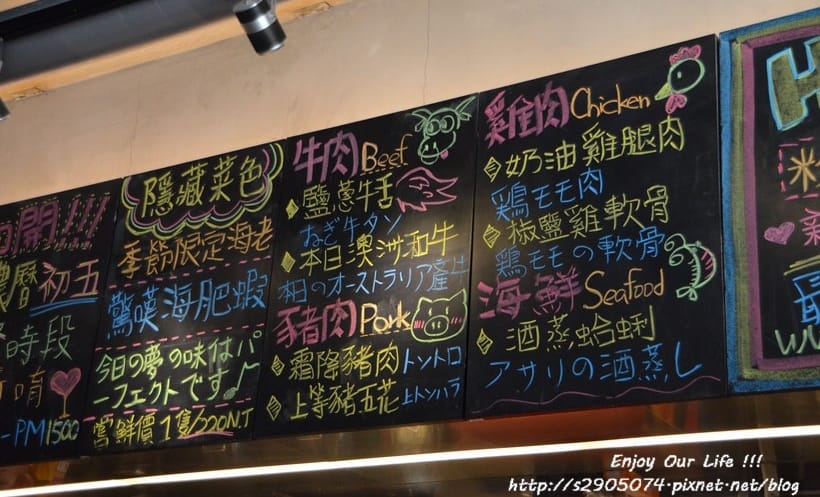 開!!!
農曆初五
時段
-PM1500
隱藏菜色
季節限定海老
驚嘆海肥蝦
今日の夢の味はパ
ーフェクトです♪
嘗鮮價1隻/220N.T
牛肉Beef
鹽蔥牛舌
ねぎ牛タン
本日澳洲和牛
本日のオーストラリア産牛
豬肉Pork
霜降豬肉トントロ
上等豬五花上トンバラ
雞肉Chicken
奶油雞腿肉
鶏モモ肉
椒鹽雞軟骨
鶏モモの軟骨
海鮮Seafood
酒蒸蛤蜊
アサリの酒蒸し
Enjoy Our Life !!!
http://s2905074.pixnet.net/blog